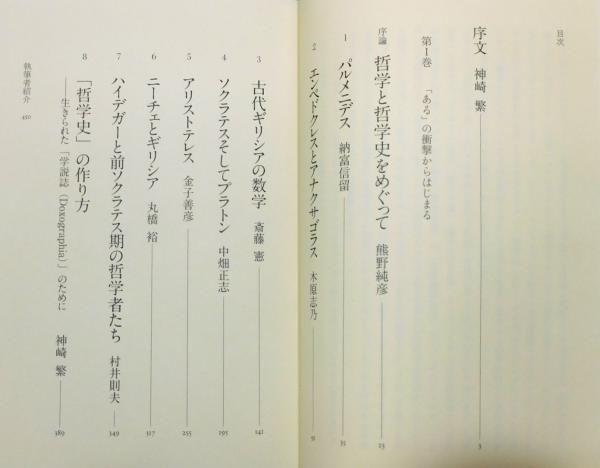 目次
序文 神崎 繁 3
第Ⅰ巻 「ある」の衝撃からはじまる
序論 哲学と哲学史をめぐって 熊野純彦 23
1 パルメニデス 納富信留 35
2 エンペドクレスとアナクサゴラス 木原志乃 91
3 古代ギリシアの数学 斎藤 憲 141
4 ソクラテスそしてプラトン 中畑正志 195
5 アリストテレス 金子善彦 255
6 ニーチェとギリシア 丸橋 裕 317
7 ハイデガーと前ソクラテス期の哲学者たち 村井則夫 349
8 「哲学史」の作り方
――生きられた「学説誌（Doxographia）」のために 神崎 繁 389
執筆者紹介 450